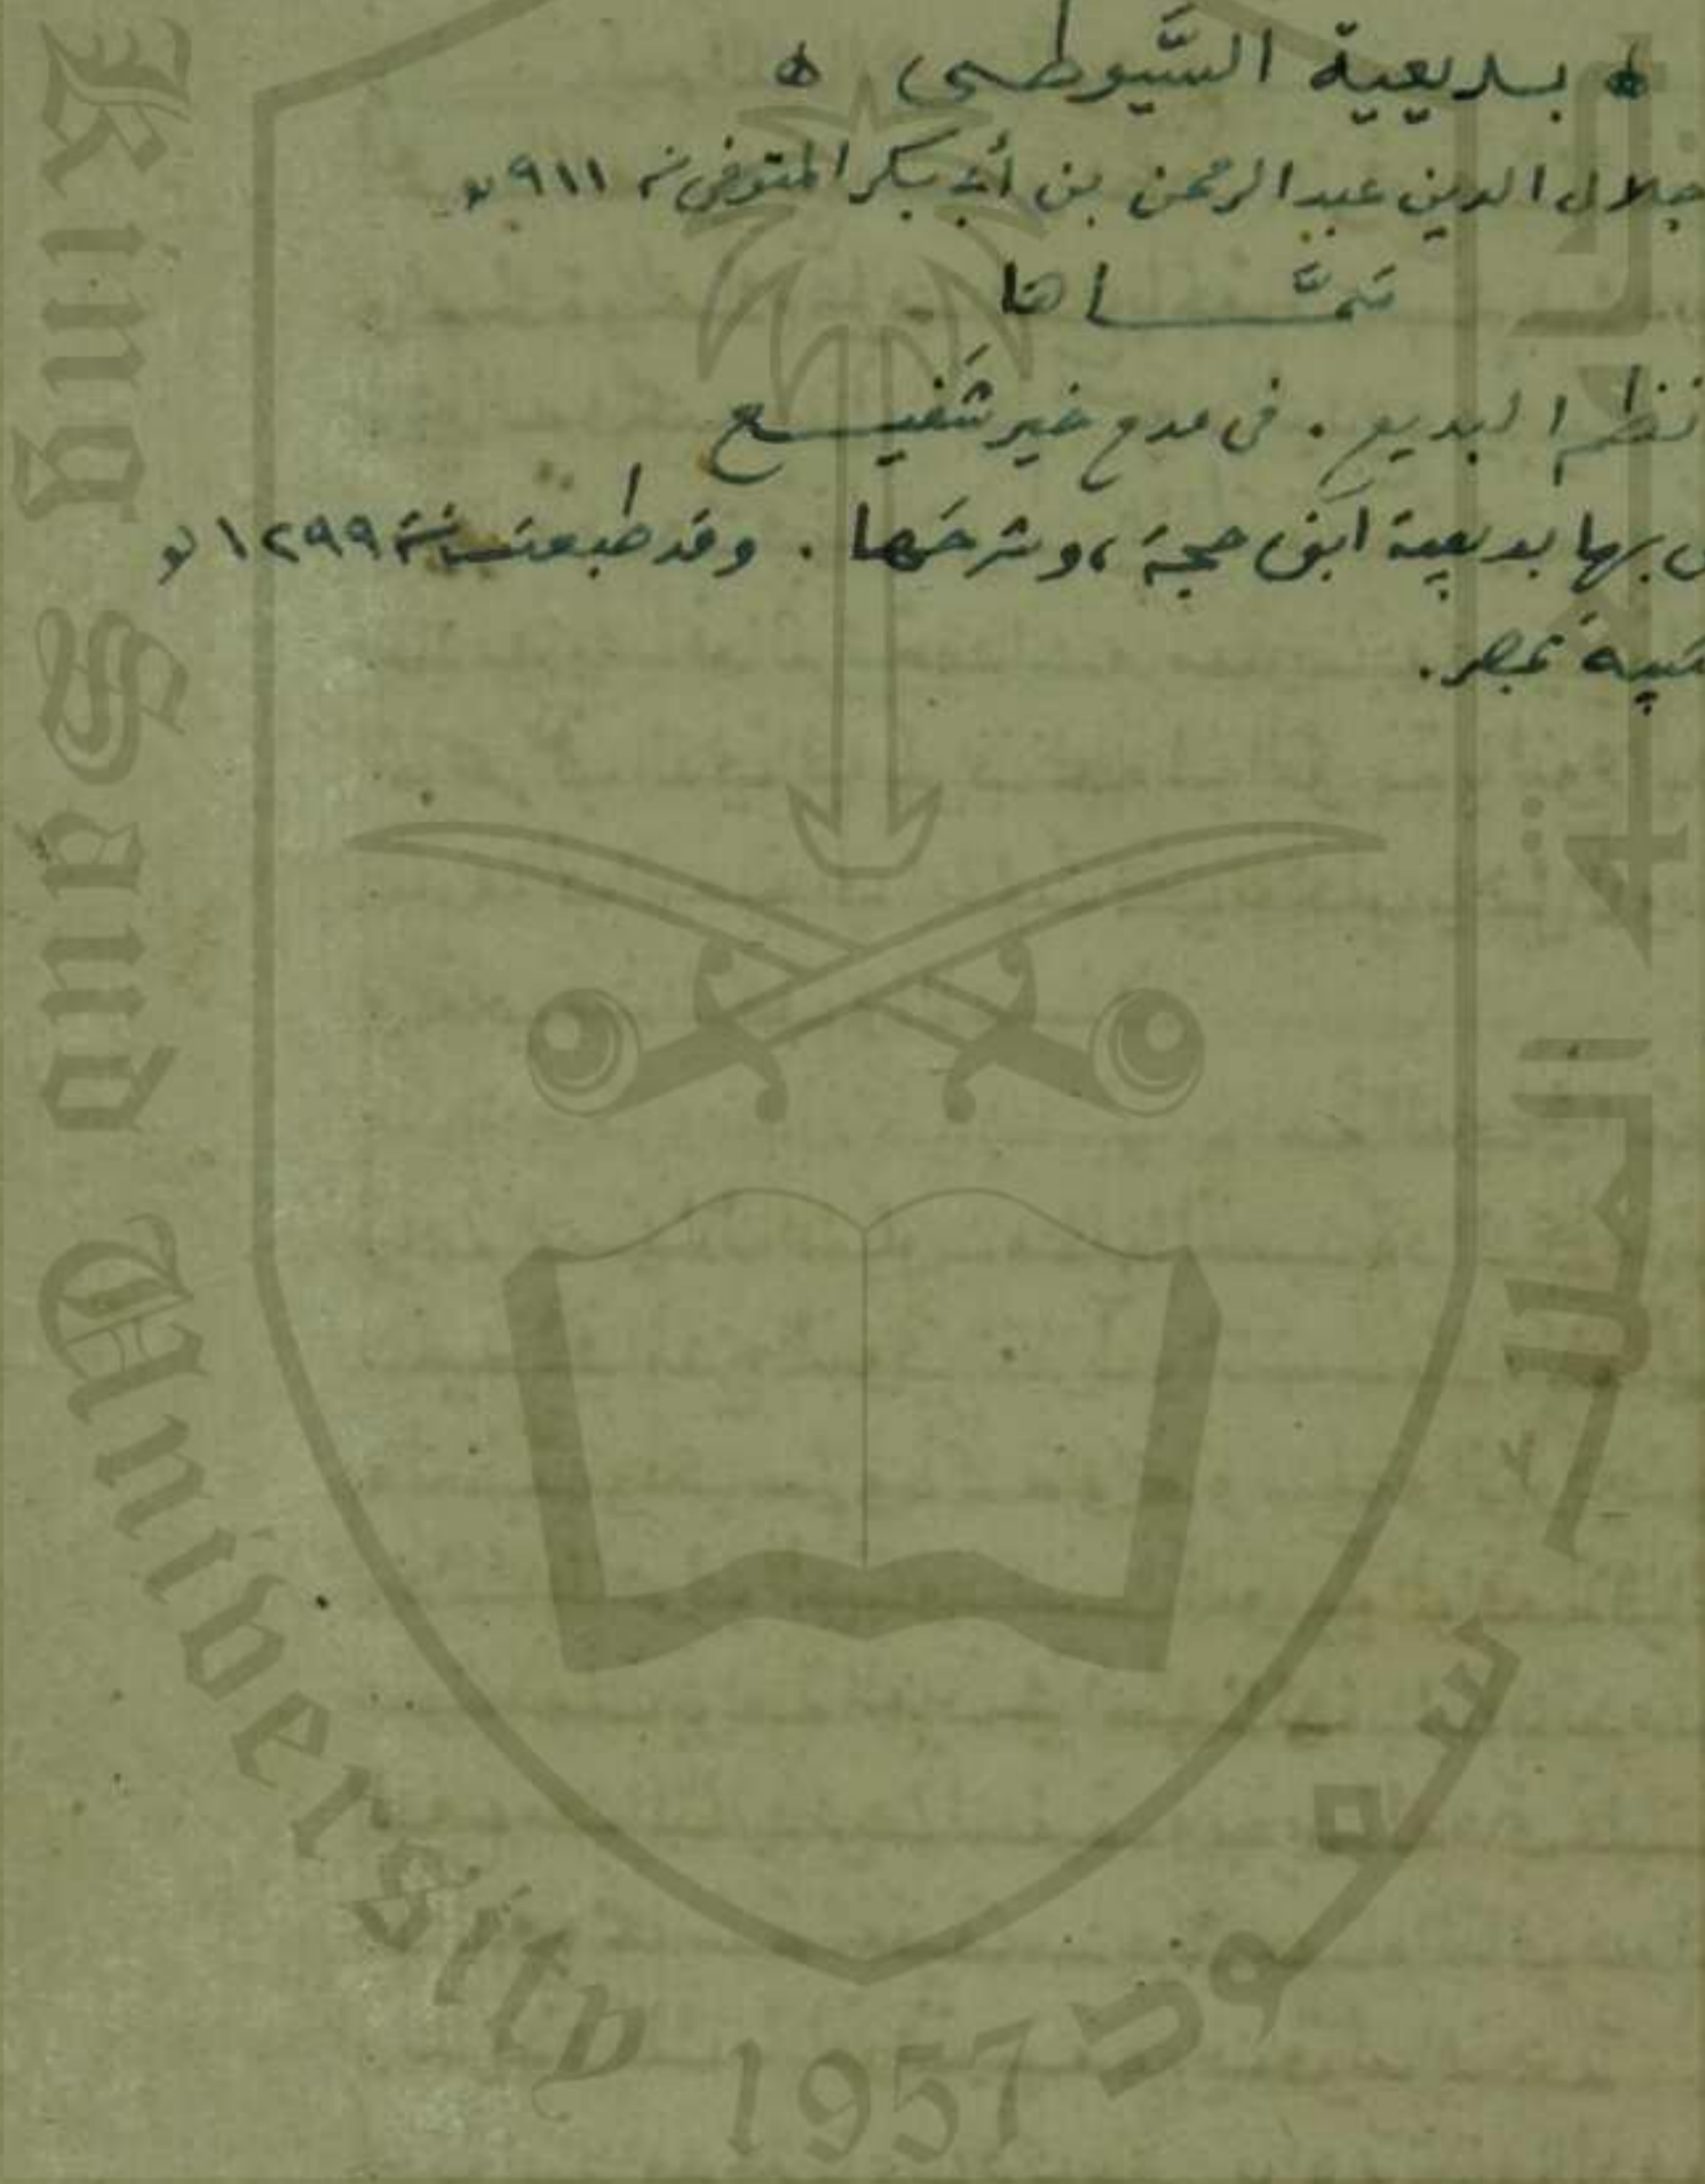 بديعية السَّيوطى
جلال الدين عبد الرحمن بن أبى بكر المتوفى سنة ٩١١ هـ
سَمَّـــاها
نظم البديع . فى مدح خير شَفيــع
بها بديعية ابن حجة، وشرحَها . وقد طبعت سنة ١٢٩٩ هـ
بمصر.
King Saud University 1957
سعود